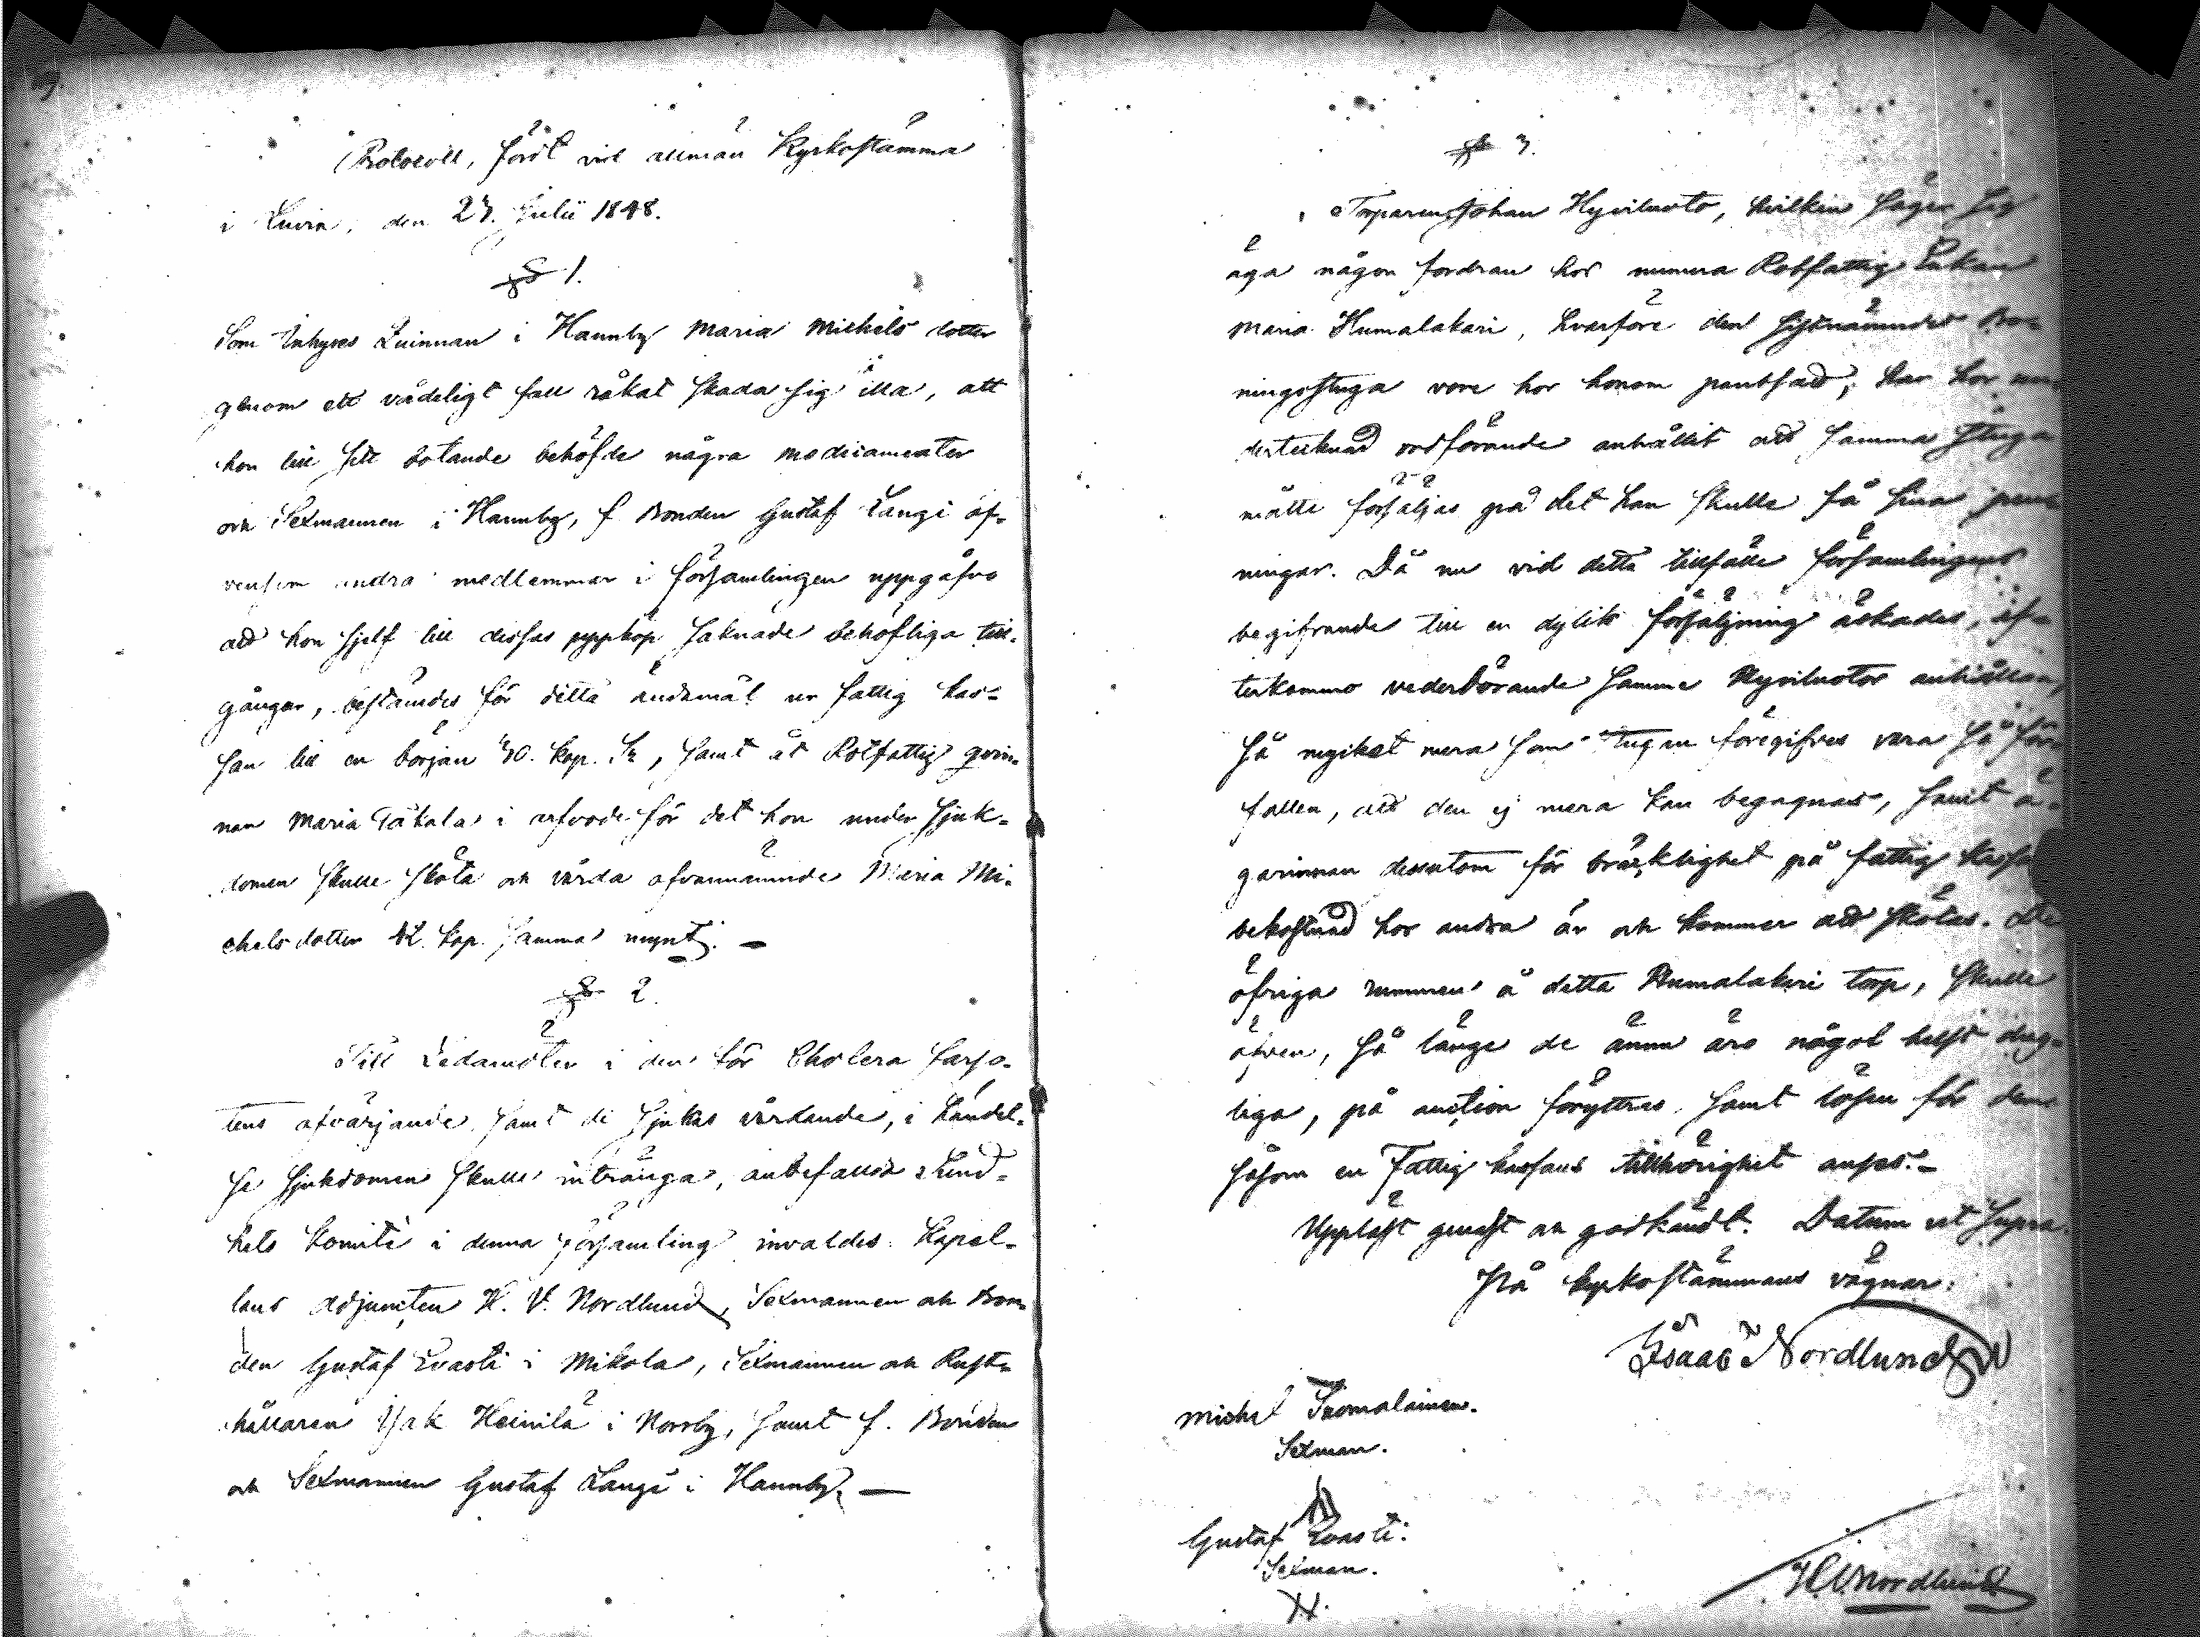 Protocoll, fördt vid allmän Kyrkostämma
i Luvia, den 23. Julii 1848.
§ 1.
Som Inhyses Qvinnan i Hannby Maria Michels dotter
genom ett vådeligt fall råkat skada sig illa, att
hon till sitt botande behöfde några medicamenter
och Sexmannen i Hannby, f. Bonden Gustaf Langi äf-
vensom andra medlemmar i församlingen uppgåfvo
att hon sjelf till dessas uppköp saknade behöfliga till-
gångar, bestämdes för detta ändamål ur fattig kas-
san till en början 30. kop. Sr, samt åt Rotfattig qvin-
nan Maria Täkala i arfvode för det hon under sjuk-
domen skulle sköta och vårda ofvannämnde Maria Mi-
chels dotter 42. kop. samma mynt. —
§ 2.
Till Ledamöter i den för Cholera farso-
tens afvärjande samt de sjukas vårdande, i händel-
se sjukdomen skulle intränga, anbefallda Sund-
hets Komité i denna församling invaldes: Kapel-
lans adjuncten H. V. Nordlund, Sexmannen och Bon-
den Gustaf Qvasti i Mikola, Sexmannen och Rust-
hållaren Isak Heinilä i Norrby, samt f. Bonden
och Sexmannen Gustaf Langi i Hannby. —
§ 3.
Torparen Johan Hyviluoto, hvilken säger sig
äga någon fordran hos numera Rotfattig Enkan
Maria Humalakari, hvarföre den sistnämndes Bo-
ningsstuga vore hos honom pantsatt, har hos un-
dertecknad ordförande anhållit att samma stuga
måtte försäljas på det han skulle få sina pen-
ningar. Då nu vid detta tillfälle församlingens
begifvande till en dylik försäljning äskades, af-
terkommo vederbörande samma Hyviluotos anhållan,
så mycket mera som stugan föregifves vara så för-
fallen, att den ej mera kan begagnas, samt ä-
garinnan dessutom för bräcklighet på fattig kassans
bekostnad hos andra är och kommer att skötas. De
öfriga rummen å detta Humalakari torp, skulle
äfven, så länge de ännu äro något helst dug-
liga, på auction föryttras, samt lösen för dem
såsom en Fattig kassans tillhörighet anses. —
Uppläst genast och godkändt. Datum ut supra.
På kyrkostämmans vägnar:
Isaac Nordlund
Michel Suomalainen.
Sexman.
Gustaf Qvasti.
Sexman.
H V Nordlund